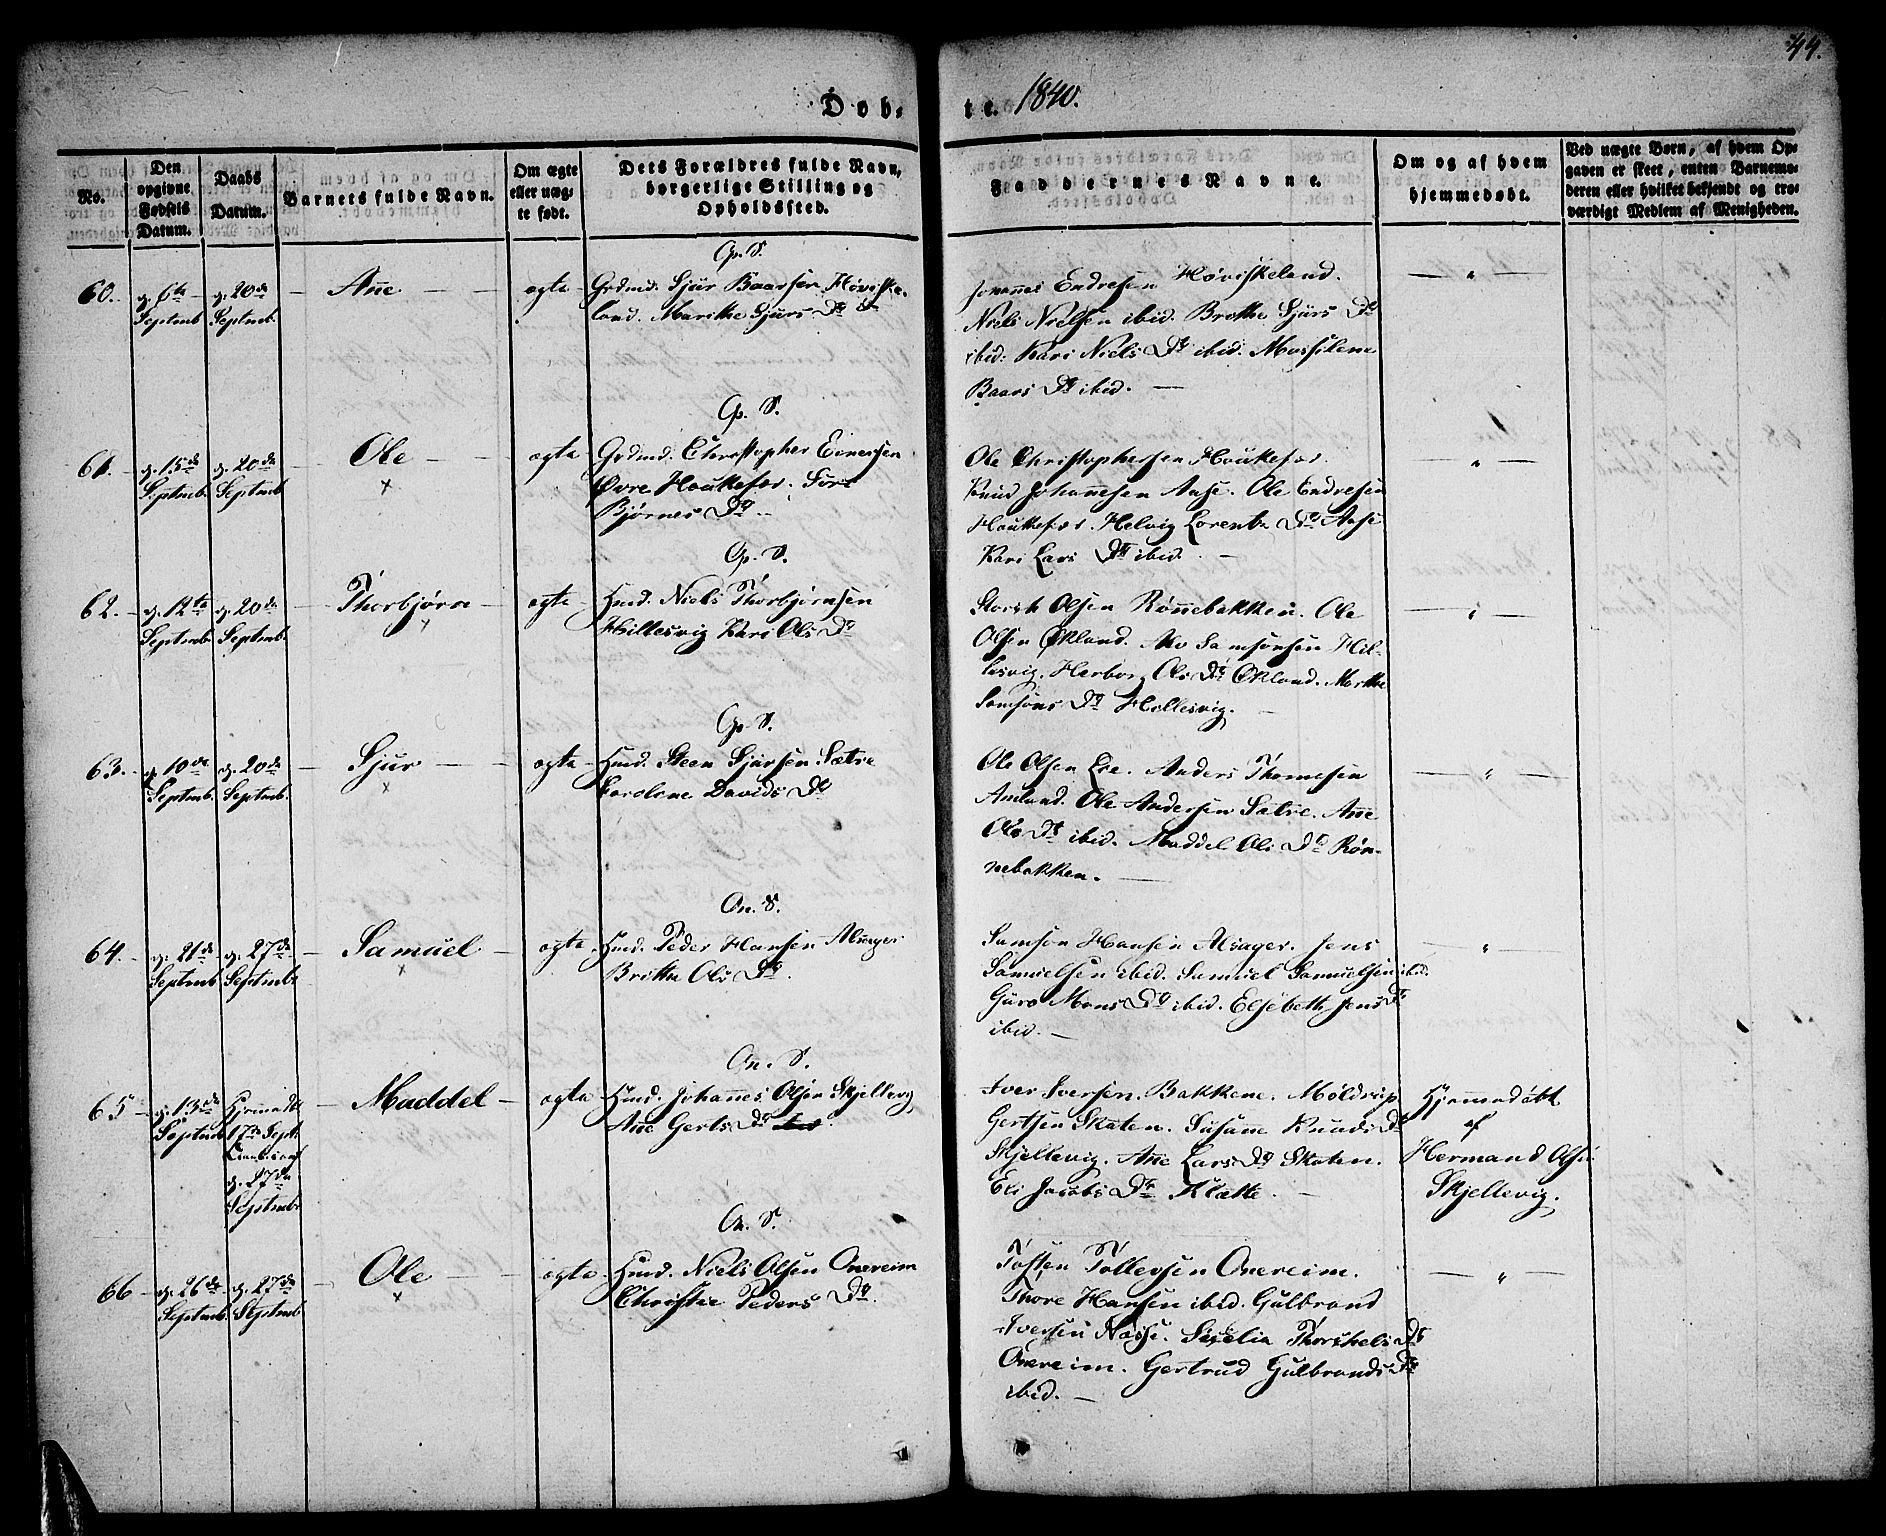 44.
Døb-te. 1840.
No.
Den opgivne Fødsels Datum.
Daabs Datum.
Barnets fulde Navn.
Om ægte eller uægte født.
Dets Forældres fulde Navn, borgerlige Stilling og Opholdssted.
Faddernes Navne.
Om og af hvem hjemmedøbt.
Ved uægte Børn, af hvem Opgaven er skeet, enten Barnemoderen eller hvilket bekjendt og troværdigt Medlem af Menigheden.
Op. S.
60. d. 6te Septmb. d. 20de Septmb. Ane ægte Grdmd. Sjur Baarsen Høviske-
land. Marithe Sjurs Dr
Johannes Endresen Høviskeland.
Niels Nielsen ibid. Brethe Sjurs Dr
ibid. Kari Niels Dr ibid.
Baars Dr ibid. —
Op. S.
61. d. 15de Septmb. d. 20de Septmb. Ole ægte Grdmd. Christopher
Øvre Houkefær.
Bjørnes Dr
Ole Christophersen Houkefær.
Knud Johannesen Aase. Ole Endresen
Houkefær. Helvig Lorents Dr Aase
Kari Lars Dr ibid. —
Op. S.
62. d. 12te Septmb. d. 20de Septmb. Thorbjørn ægte Hmd. Niels Thorbjørnsen
Hillesvig Kari Ols Dr
Olsen Rønnebakken. Ole
Olsen Økland. Samsonsen Hil-
lesvig. Herborg Ols Dr Økland. Marthe
Samsons Dr Hillesvig. —
Op. S.
63. d. 10de Septmb. d. 20de Septmb. Sjur ægte Hmd. Steen Sjursen Sætre
Carolene Davids Dr
Ole Olsen Lie. Anders Thomesen
Amland. Ole Andersen Sætre. Ane
Ols Dr ibid. Maddel Ols Dr Røn-
nebakken. —
On. S.
64. d. 21de Septmb. d. 27de Septmb. Samuel ægte Hmd. Peder Hansen Alsager
Brithe Ols Dr.
Samson Hansen Alsager. Jens
Samuelsen ibid. Samuel Samuelsen ibid.
Guro Mons Dr ibid. Elsebeth Jens Dr
ibid. —
On. S.
65 d. 13de Septmb. Hjemmedbt. 17de Sept. d. 27de Septmb. Maddel ægte Hmd. Johannes Olsen Skjellevig
Ane Gerts Dr
Iver Iversen Bakkene. Moldrup
Gertsen Skaten. Susane Knuds Dr
Skjellevig. Ane Lars Dr Skaten.
Eli Jacobs Dr Klætte. —
Hjemmedøbt
af
Hermand Olsen
Skjellevig.
On. S.
66 d. 26de Septmb. d. 27de Septmb. Ole ægte Hmd. Niels Olsen Onereim
Christie Peders Dr.
Tosten Tollevsen Onereim.
Thore Hansen ibid. Gulbrand
Iversen Næsse. Siselia Thorkels Dr
Onereim. Gertrud Gulbrands Dr
ibid. —